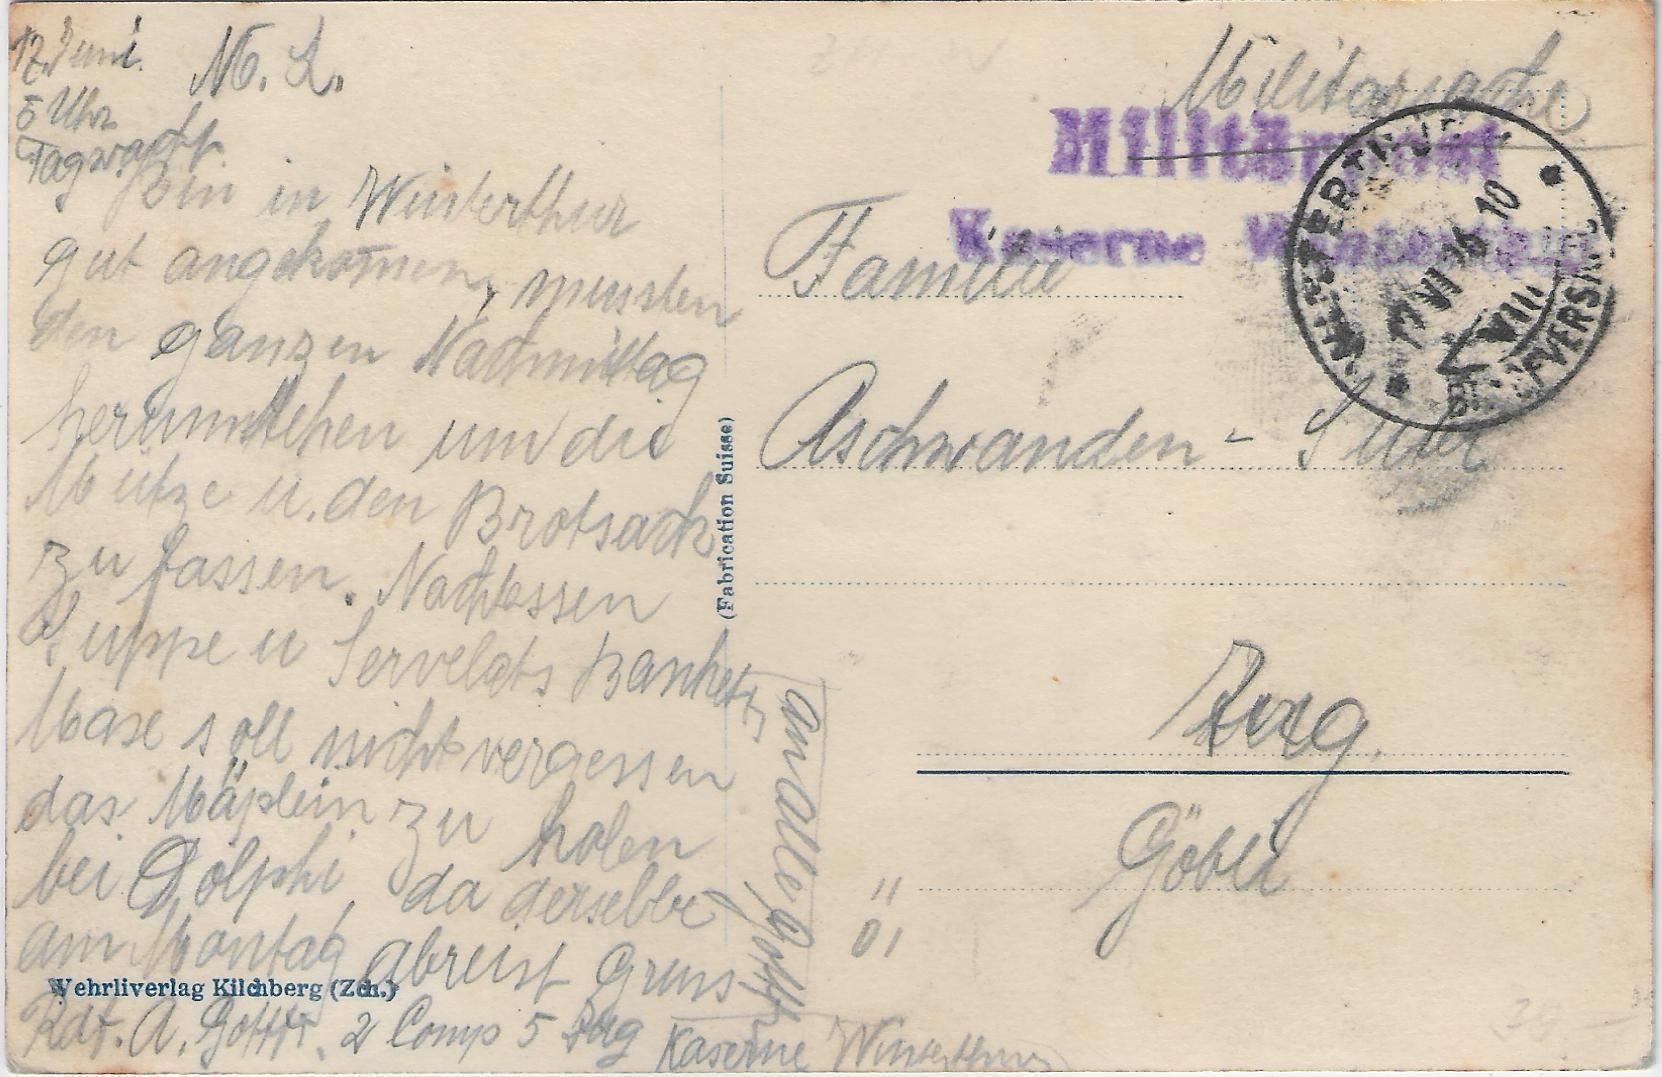 17. Juni.
5 Uhr
Tagwacht.
M. L.
Bin in Winterthur
gut angekommen, mussten
den ganzen Nachmittag
herumstehen um die
Mütze u. den Brotsack
zu fassen. Nachtessen
Suppe u Servelats
Mase soll nicht vergessen
das Mäplein zu holen
bei Dölphi da derselbe
am Montag abreist Gruss
an alle, Gottfr.
Rdt. A. Gottfr. 2 Comp 5 Zug
Kaserne Winterthur
Wehrliverlag Kilchberg (Zch.)
(Fabrication Suisse)
Militärsache
Militärpost
Kaserne Winterthur
WINTERTHUR
17 VI 16 10
VIII
BRIEFVERSAND
Familie
Aschwanden - Suter
Zug.
Göbli